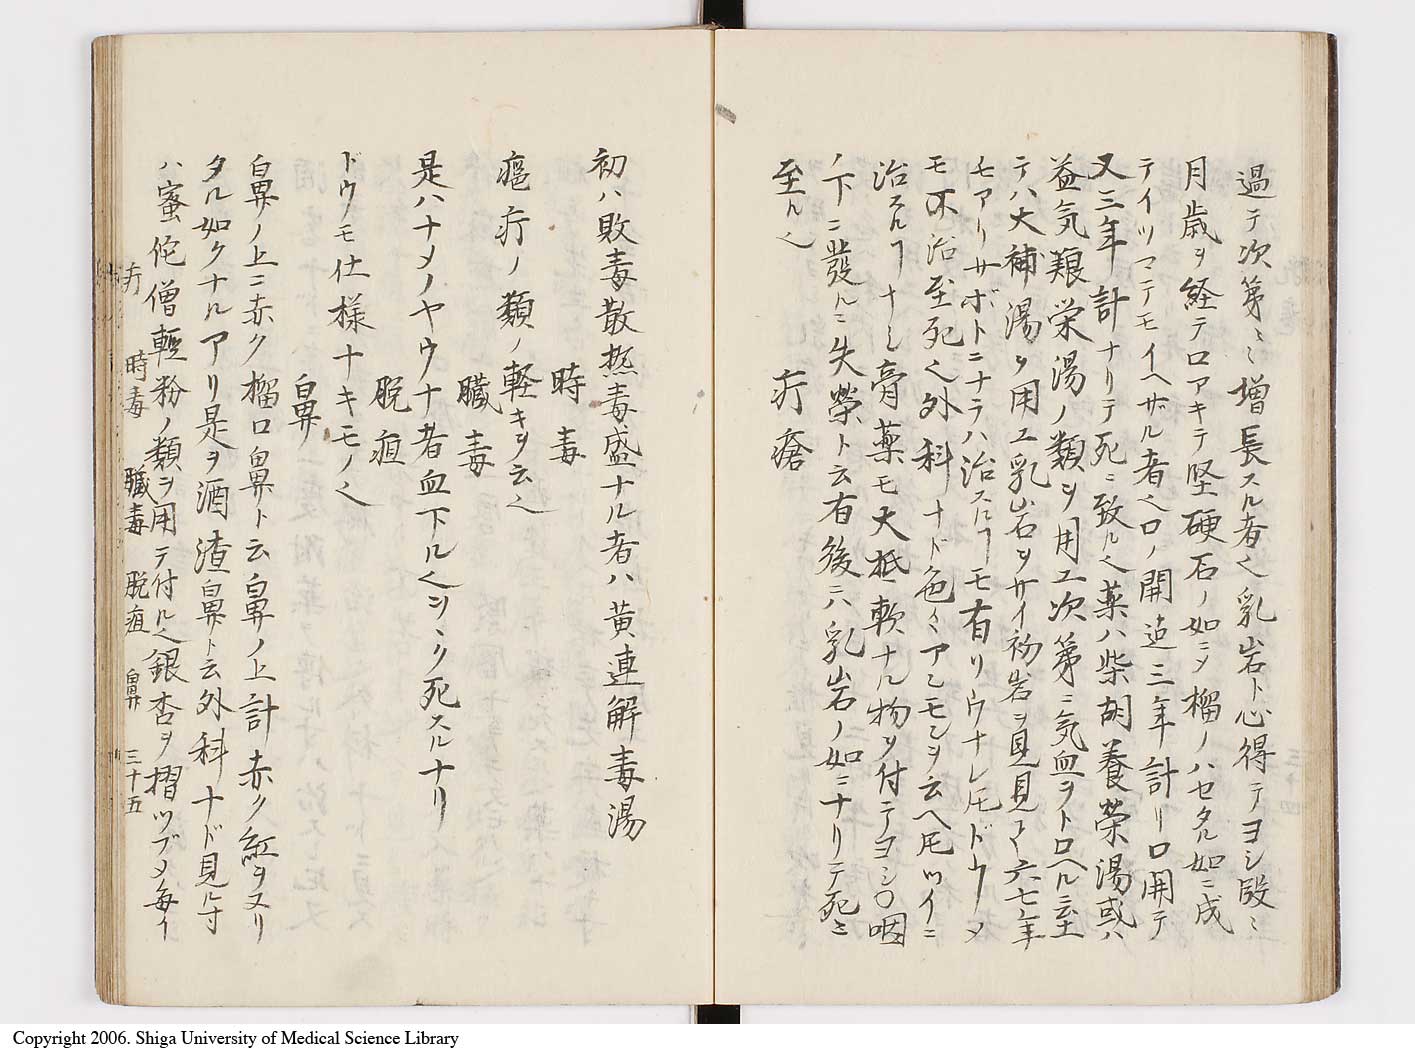 過テ次第ニ増長スル者也乳岩ト心得テヨシ殹ニ
月歳ヲ経テロアキテ堅硬石ノ如ニメ榴ノハセタル如ニ成
テイツマテモイヘザル者也口ノ開迠三年計リ口開テ
又三年計ナリテ死ニ致ル也薬ハ柴胡養榮湯或ハ
益気養栄湯ノ類ヲ用エ次第ニ気血ヲトロヘルニ至
テハ大補湯ヲ用エ乳岩ヲサイ初岩ヲ見見テ六七年
モアリサホトニナラハ治スルヿモ有リウナレ𪜈ドウメ
モ不治至死也外科ナド色々アレモシヲ云ヘ𪜈ツイニ
治スルヿナシ膏薬モ大抵軟ナル物ヲ付テヨシ○咽
ノ下ニ發ルニ失榮ト云有後ニハ乳岩ノ如ニナリテ死ニ
至ル也
疔瘡
初ハ敗毒散熱毒盛ナル者ハ黄連解毒湯
時毒
疤疔ノ類ノ軽キヲ云也
臓毒
是ハナメノヤウナ者血下ル也シヽリ死スルナリ
脱疽
ドウノモ仕様ナキモノ也
鼻
鼻ノ上ニ赤ク榴口鼻ト云鼻ノ上計赤ク紅ヲヌリ
タル如クナルアリ是ヲ酒渣鼻ト云外科ナド見ル寸
ハ蜜佗僧軽粉ノ類ヲ用テ付ル也銀杏ヲ摺ツブメ毎イ
疔 時毒 臓毒 脱疽 鼻 三十五
Copyright 2006. Shiga University of Medical Science Library